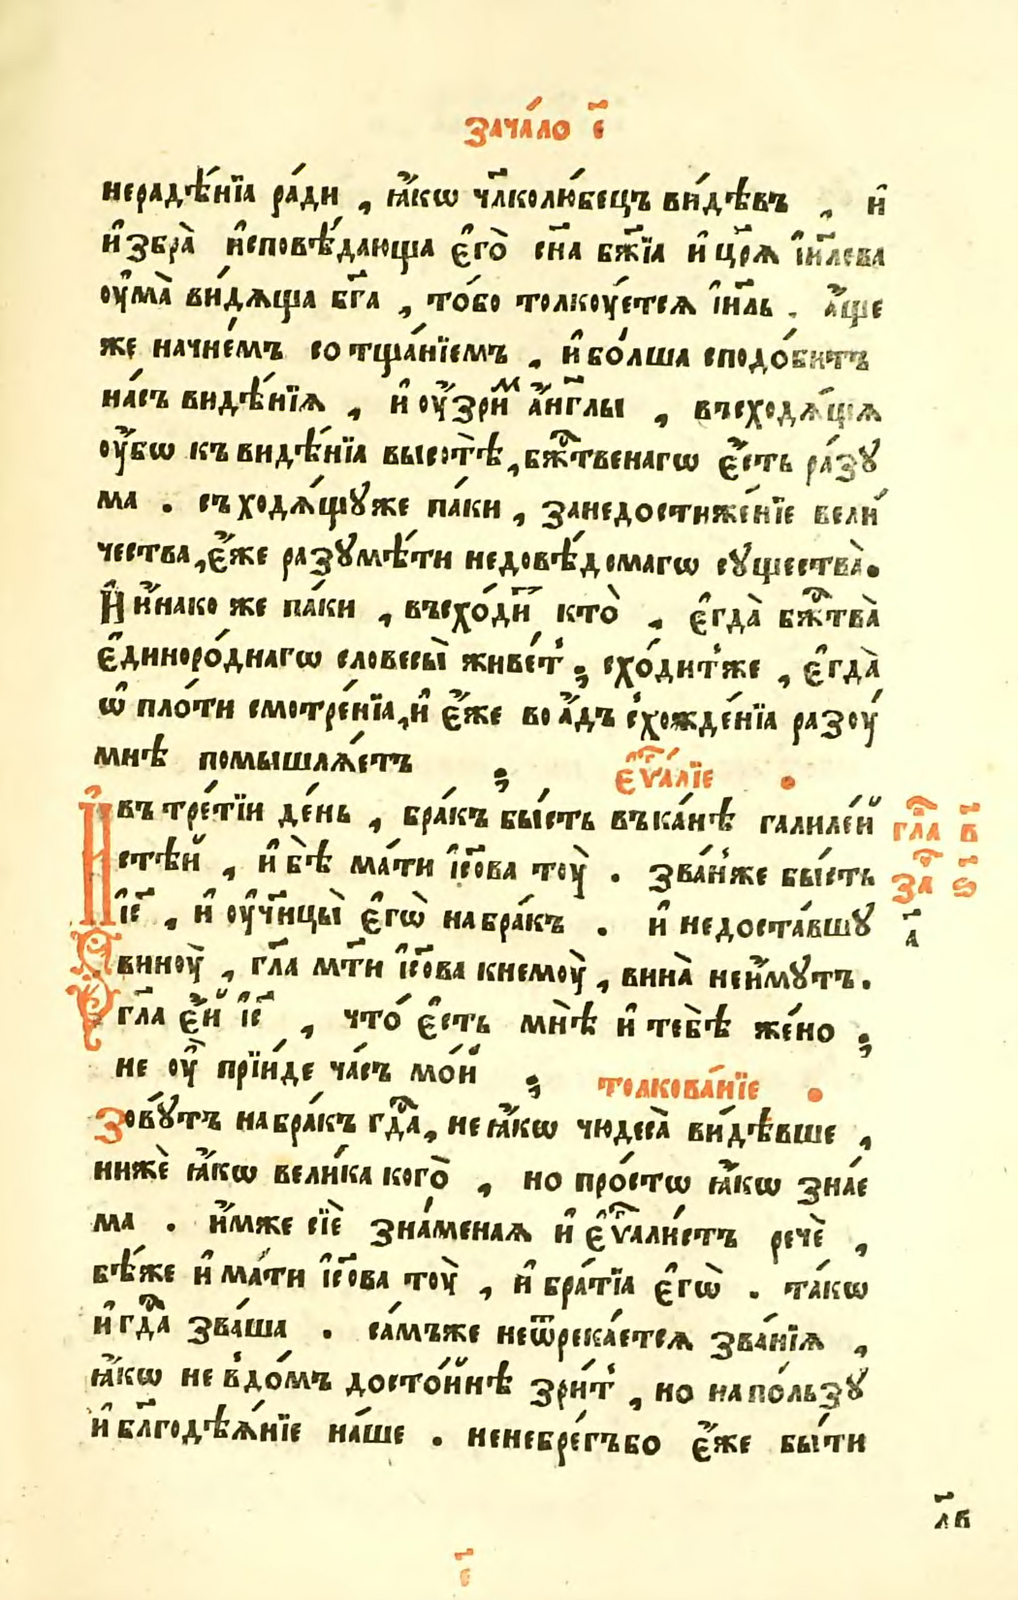 зача́ло е҃
нерадѣ́нїа ра́ди , ꙗ҆́кѡ чл҃колю́бецъ ви́дѣвъ , и҆
и҆збра̀ и҆сповѣ́дающа е҆го̀ сн҃а бж҃їа и҆ цр҃ѧ і҆и҃лева
оу҆ма̀ ви́дѧща бг҃а , то́бо толкоу́етсѧ і҆и҃ль . а҆́ще
же начне́мъ со тща́нїемъ , и҆ бо́лша сподо́битъ
на́съ видѣ́нїѧ , и҆ оу҆́зриⷨ а҆́нг҃лы , въсходѧ́щїѧ
оу҆́бѡ къ видѣ́нїа высотѣ̀ , бжⷭ҇твенагѡ є҆́сть ра́зꙋ
ма . съ ходѧ́щꙋже па́ки , за недостиже́нїе вели́
чества , є҆́же разꙋмѣ́ти недовѣ́домагѡ сꙋщества̀ .
И҆ и҆́нако же па́ки , въсхо́дӥ кто̀ , є҆гда̀ бжⷭ҇тва̀
є҆диноро́днагѡ словесы̀ живе́т̾ ; схо́дит̾же , є҆гда̀
ѡ҆ пло́ти смотре́нїа , и҆ є҆́же во а҆́дъ схожде́нїа разоу́
мнѣ помышлѧ́етъ ; є҆ѵⷢ҇а́лїе .
И҆ въ тре́тїи де́нь , бра́къ бы́сть въ ка́нѣ галиле́й
стѣ́й , и҆ бѣ̀ ма́ти і҆с҃ова тоу̀ . зва́н̾же бы́сть
і҆с҃ , и҆ оу҆чн҃цы̀ є҆гѡ̀ на бра́къ . и҆ недоста́вшꙋ
виноу̀ , гл҃а мт҃и і҆с҃ова к немоу̀ , вина̀ не и҆́мꙋтъ .
гл҃а є҆́й і҆с҃ , что́ є҆́сть мнѣ̀ и҆ тебѣ̀ же́но ;
не оу҆̀ прїи́де ча́съ мо́й ; толкова́нїе .
гл҃а в҃
за ѕ҃
а҃
Зовꙋ́тъ на бра́къ гдⷭ҇а , не ꙗ҆́кѡ чюдеса̀ ви́дѣвше ,
нижѐ ꙗ҆́кѡ вели́ка кого̀ , но про́стѡ ꙗ҆́кѡ зна́е
ма . и҆́мже сїѐ зна́меная и҆ є҆ѵⷢ҇али́стъ речѐ ,
бѣ́же и҆ ма́ти і҆с҃ова тоу̀ , и҆ бра́тїа є҆гѡ̀ . та́кѡ
и҆ гдⷭ҇а зва́ша . са́мъже не ѿрека́етсѧ зва́нїѧ ,
ꙗ҆́кѡ не в̾до́мъ досто́йнѣ зри́т̾ , но на по́льзꙋ
и҆ бл҃годѣѧ́нїе на́ше . не небре́гъ бо є҆́же бы́ти
лв҃
е҃